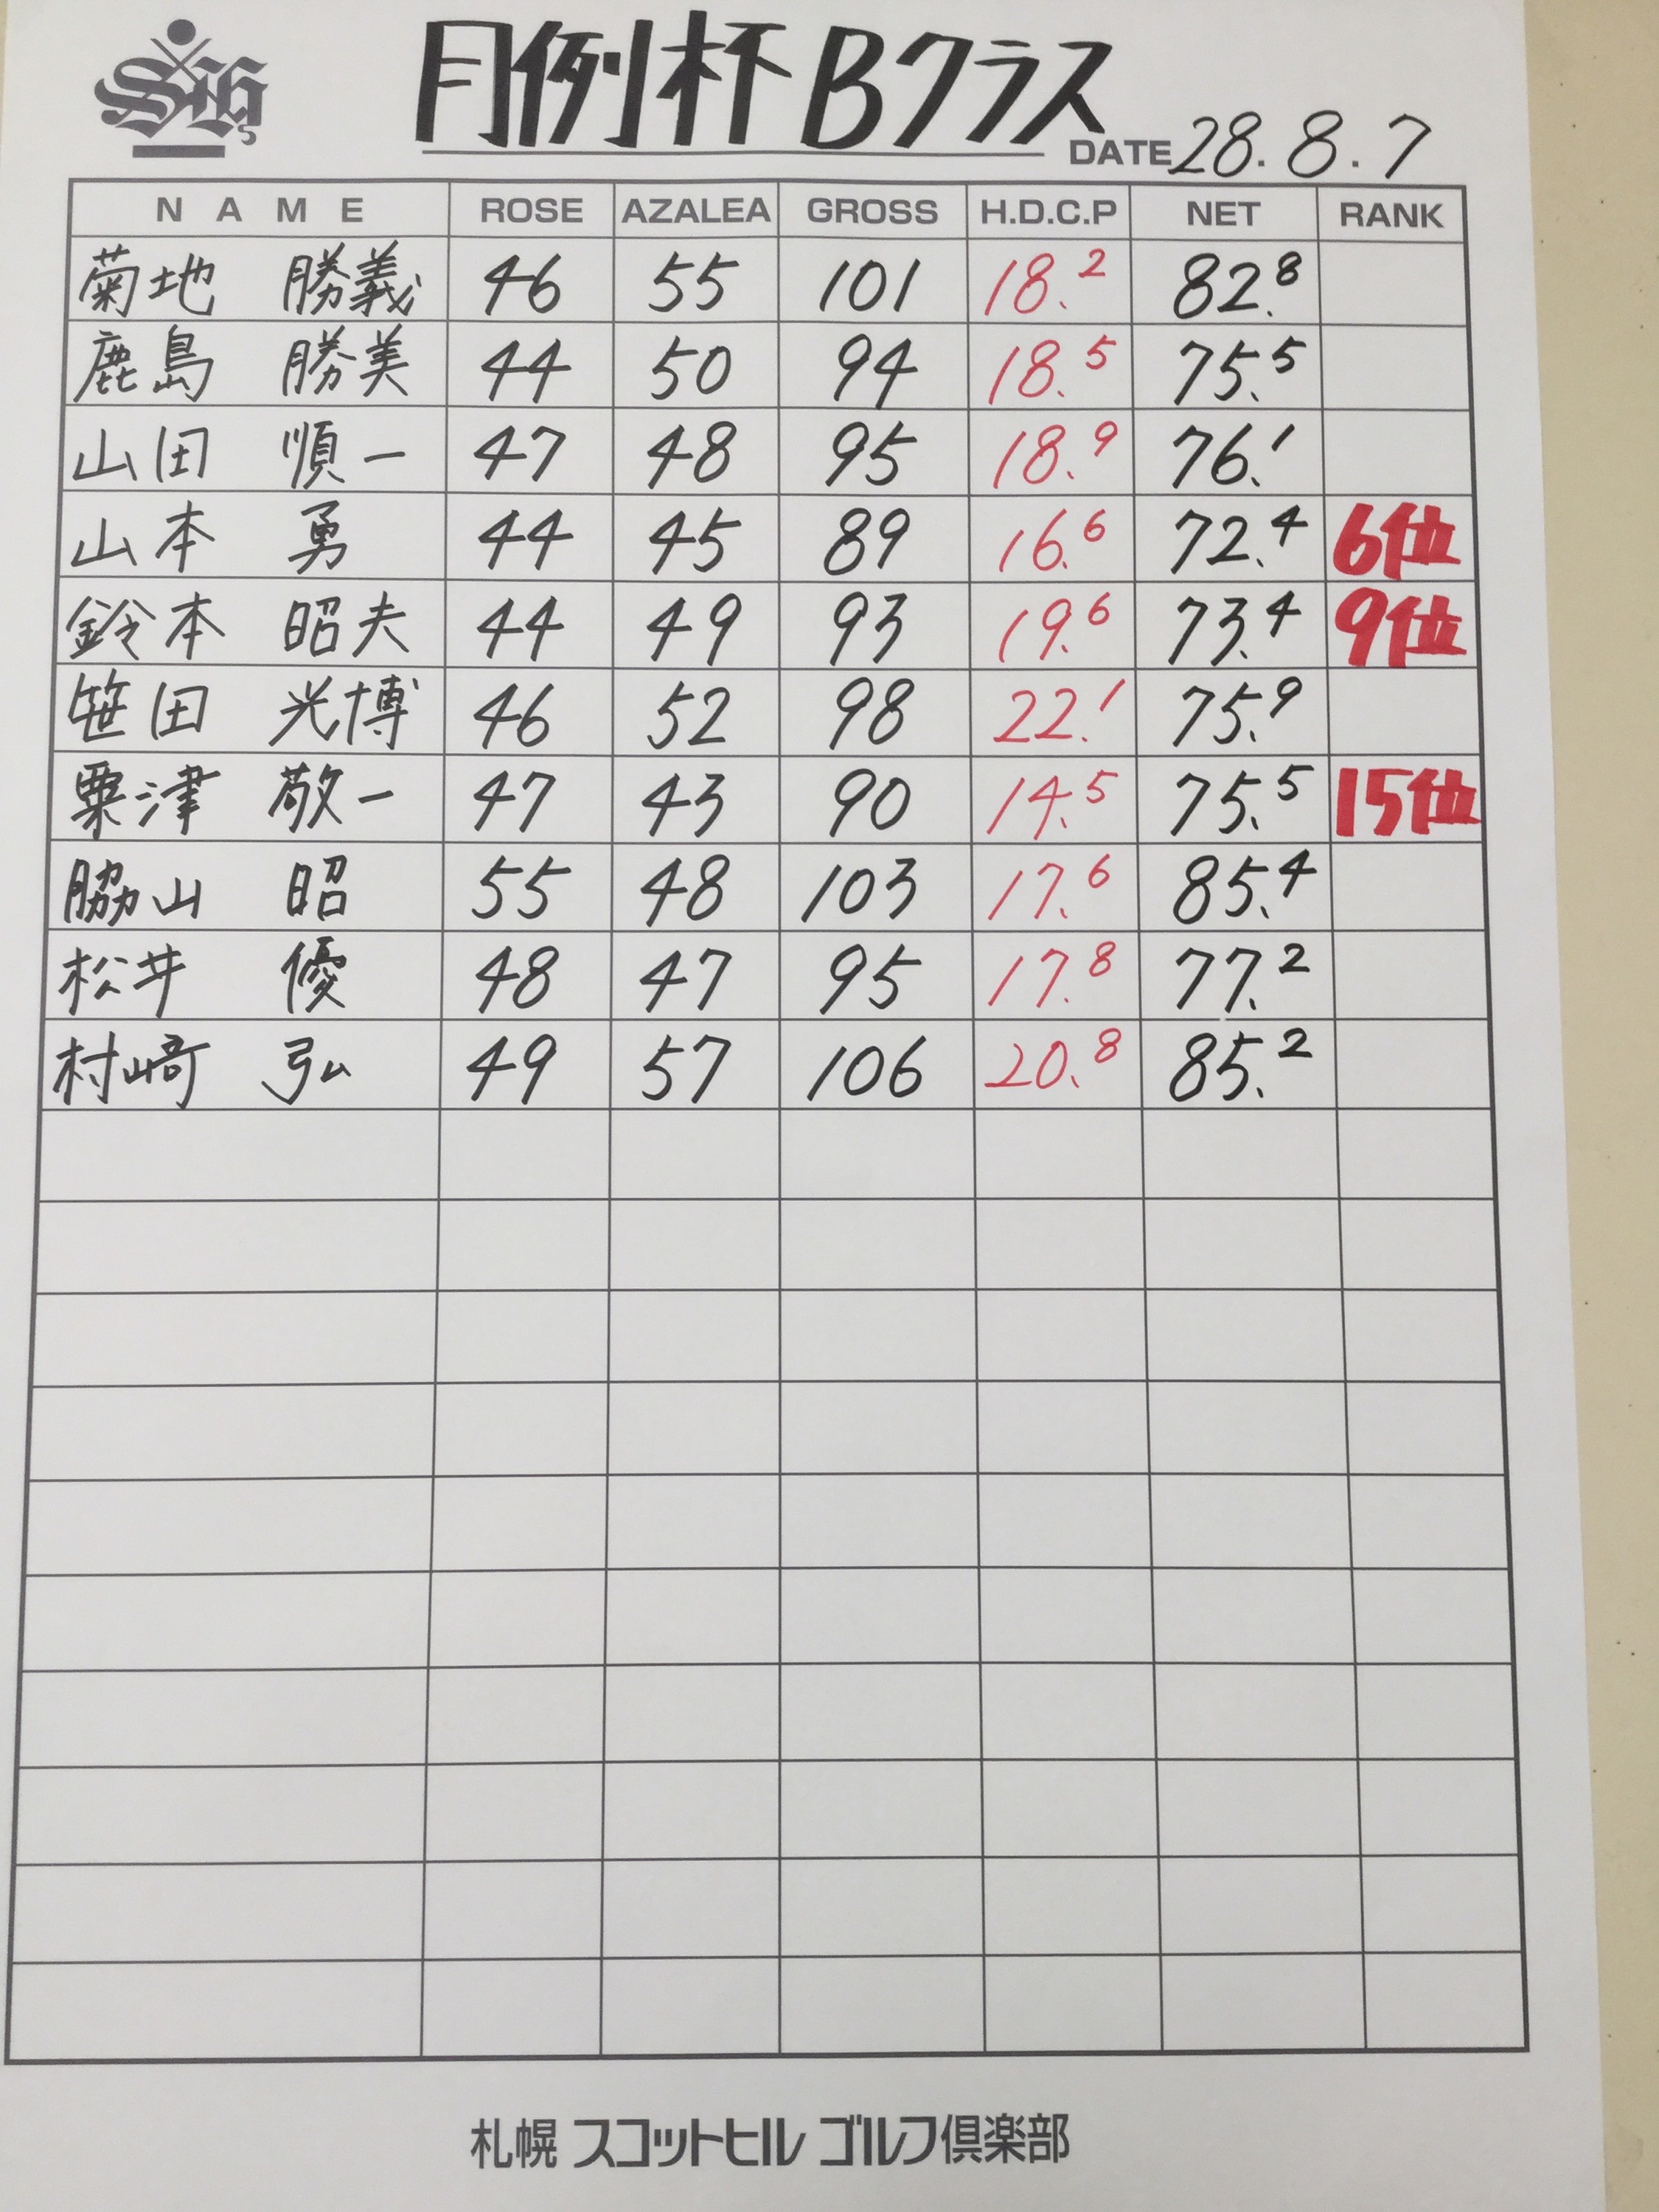 月例杯 Bクラス
DATE 28.8.7
NAME ROSE AZALEA GROSS H.D.C.P NET RANK
菊地 勝義 46 55 101 18.2 82.8
鹿島 勝美 44 50 94 18.5 75.5
山田 順一 47 48 95 18.9 76.1
山本 勇 44 45 89 16.6 72.4 6位
鈴本 昭夫 44 49 93 19.6 73.4 9位
笹田 光博 46 52 98 22.1 75.9
粟津 敬一 47 43 90 14.5 75.5 15位
脇山 昭 55 48 103 17.6 85.4
松井 優 48 47 95 17.8 77.2
村﨑 弘 49 57 106 20.8 85.2
札幌 スコットヒル ゴルフ倶楽部